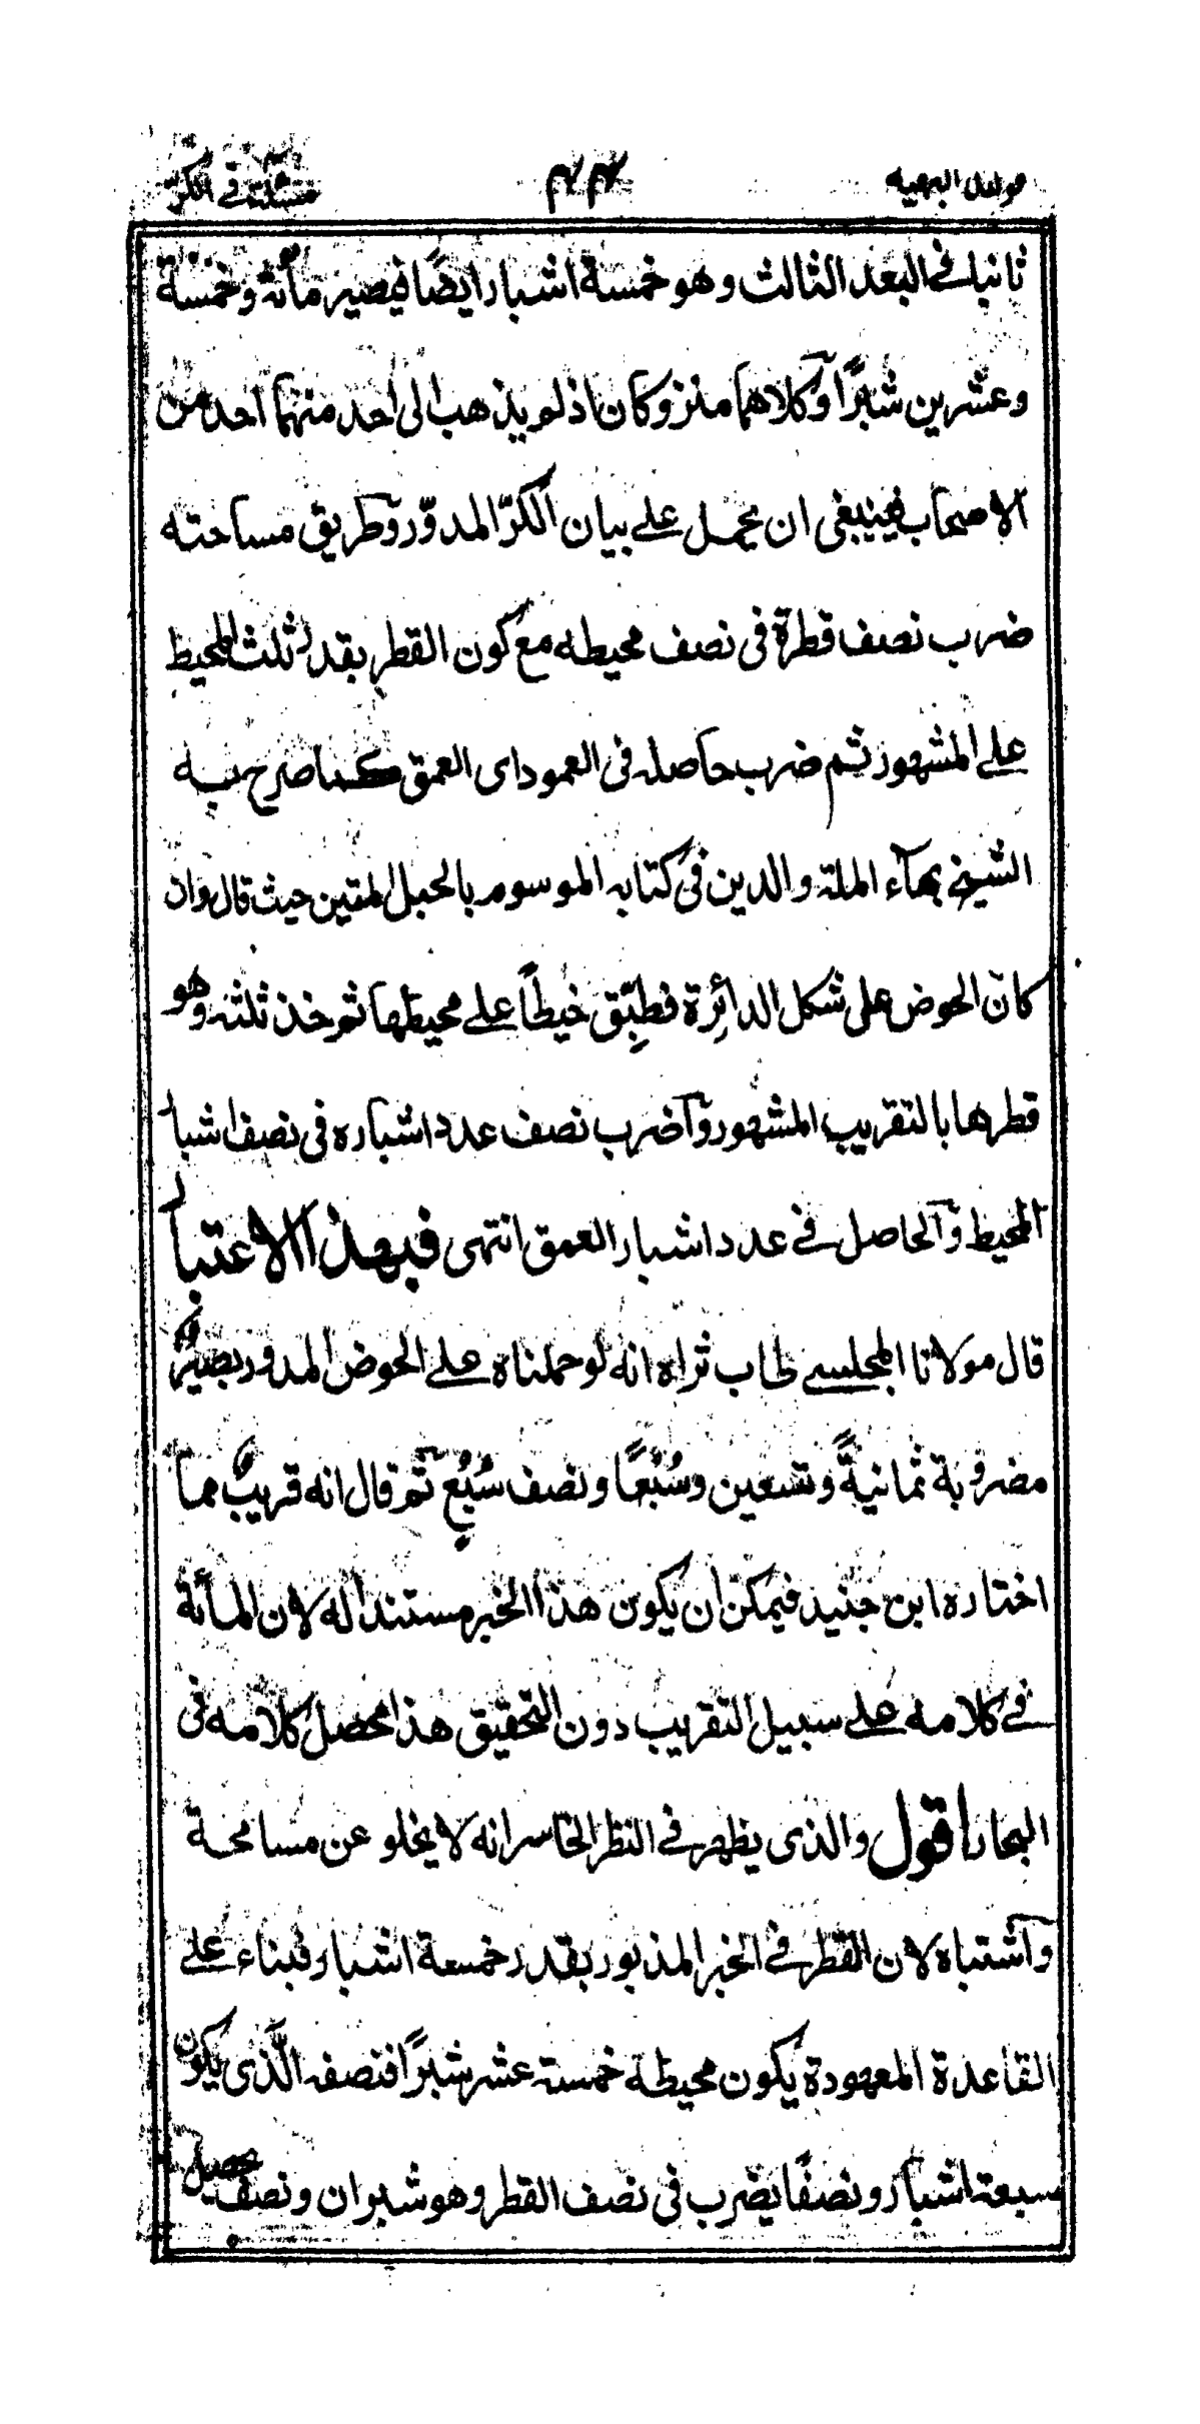 فوائد البهيه ٤٤ مسئلة فى الكر
ثانيا فى البعد الثالث وهو خمسة اشبار ايضًا فيصير مائة وخمسة
وعشرين شبرًا وكلاهما متروكان اذ لم يذهب الى احد منهما احد من
الاصحاب فينبغى ان يحمل على بيان الكرّ المدوّر وطريق مساحته
ضرب نصف قطرة فى نصف محيطه مع كون القطر بقدر ثلث المحيط
على المشهور ثم ضرب حاصله فى العمود اى العمق كما صرح به
الشيخ بهآء الملة والدين فى كتابه الموسوم بالحبل المتين حيث قال وان
كان الحوض على شكل الدائرة فطبّق خيطًا على محيطها ثم خذ ثلثه وهو
قطرها بالتقريب المشهور واضرب نصف عدد اشباره فى نصف اشبار
المحيط والحاصل فى عدد اشبار العمق انتهى فبهذا الاعتبار
قال مولانا المجلسى طاب ثراه انه لو حملناه على الحوض المدور يصير
مضروبة ثمانيةً وتسعين وسُبُعًا ونصف سُبُعٍ ثم قال انه قريبٌ مما
اختاره ابن جنيد فيمكن ان يكون هذا الخبر مستندا له لان المائة
فى كلامه على سبيل التقريب دون التحقيق هذا محصل كلامه فى
البحار اقول والذى يظهر فى النظر الخاسر انه لا يخلو عن مسامحة
واشتباه لان القطر فى الخبر المذبور بقدر خمسة اشبار فبناء على
القاعدة المعهودة يكون محيطه خمسة عشر شبرًا فنصفه الّذى يكون
سبعة اشبار ونصفًا يضرب فى نصف القطر وهو شبران ونصف يحصل